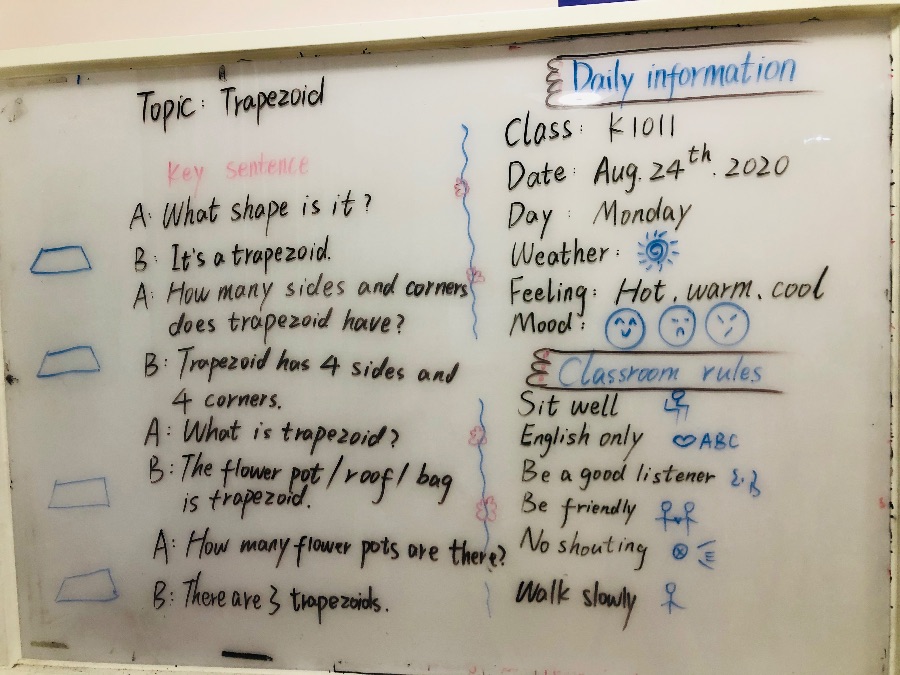 Topic: Trapezoid
Key sentence
A: What shape is it?
B: It's a trapezoid.
A: How many sides and corners
does trapezoid have?
B: Trapezoid has 4 sides and
4 corners.
A: What is trapezoid?
B: The flower pot / roof / bag
is trapezoid.
A: How many flower pots are there?
B: There are 3 trapezoids.
Daily information
Class: K1011
Date: Aug. 24th. 2020
Day: Monday
Weather:
Feeling: Hot. warm. cool
Mood:
Classroom rules
Sit well
English only ABC
Be a good listener
Be friendly
No shouting
Walk slowly